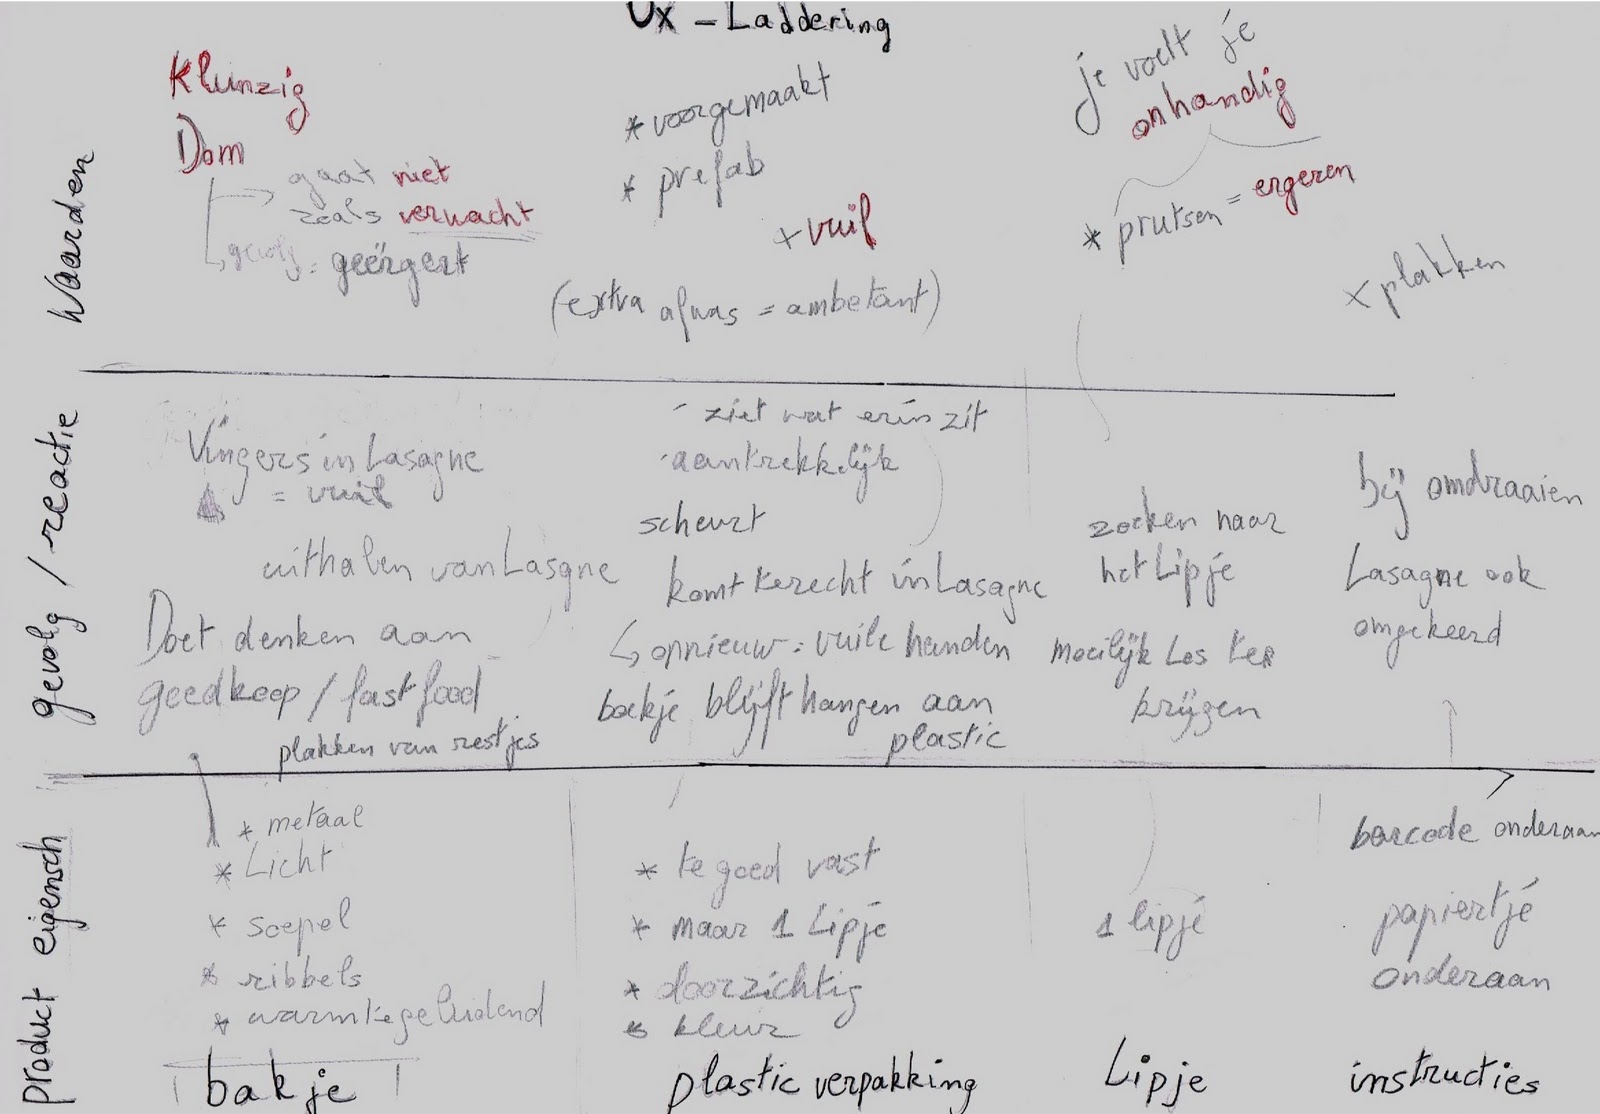 Ux - Laddering
Waarden
Klunzig
Dom
gaat niet
zoals verwacht
gevolg: geërgert
* voorgemaakt
* prefab
+ vuil
(extra afwas = ambetant)
je voelt je
onhandig
* prutsen = ergeren
x plakken
gevolg / reactie
Vingers in Lasagne
= vuil
uithalen van Lasgne
Doet denken aan
goedkoop / fastfood
plakken van restjes
- ziet wat erin zit
- aantrekkelijk
scheurt
komt terecht in Lasagne
↳ opnieuw: vuile handen
bakje blijft hangen aan
plastic
zoeken naar
het Lipje
moeilijk Los te
krijgen
bij omdraaien
Lasagne ook
omgekeerd
product eigensch
* metaal
* Licht
* soepel
* ribbels
* warmtegeluidend
bakje
* te goed vast
* maar 1 Lipje
* doorzichtig
* kleur
plastic verpakking
1 lipje
Lipje
barcode onderaan
papiertje
onderaan
instructies